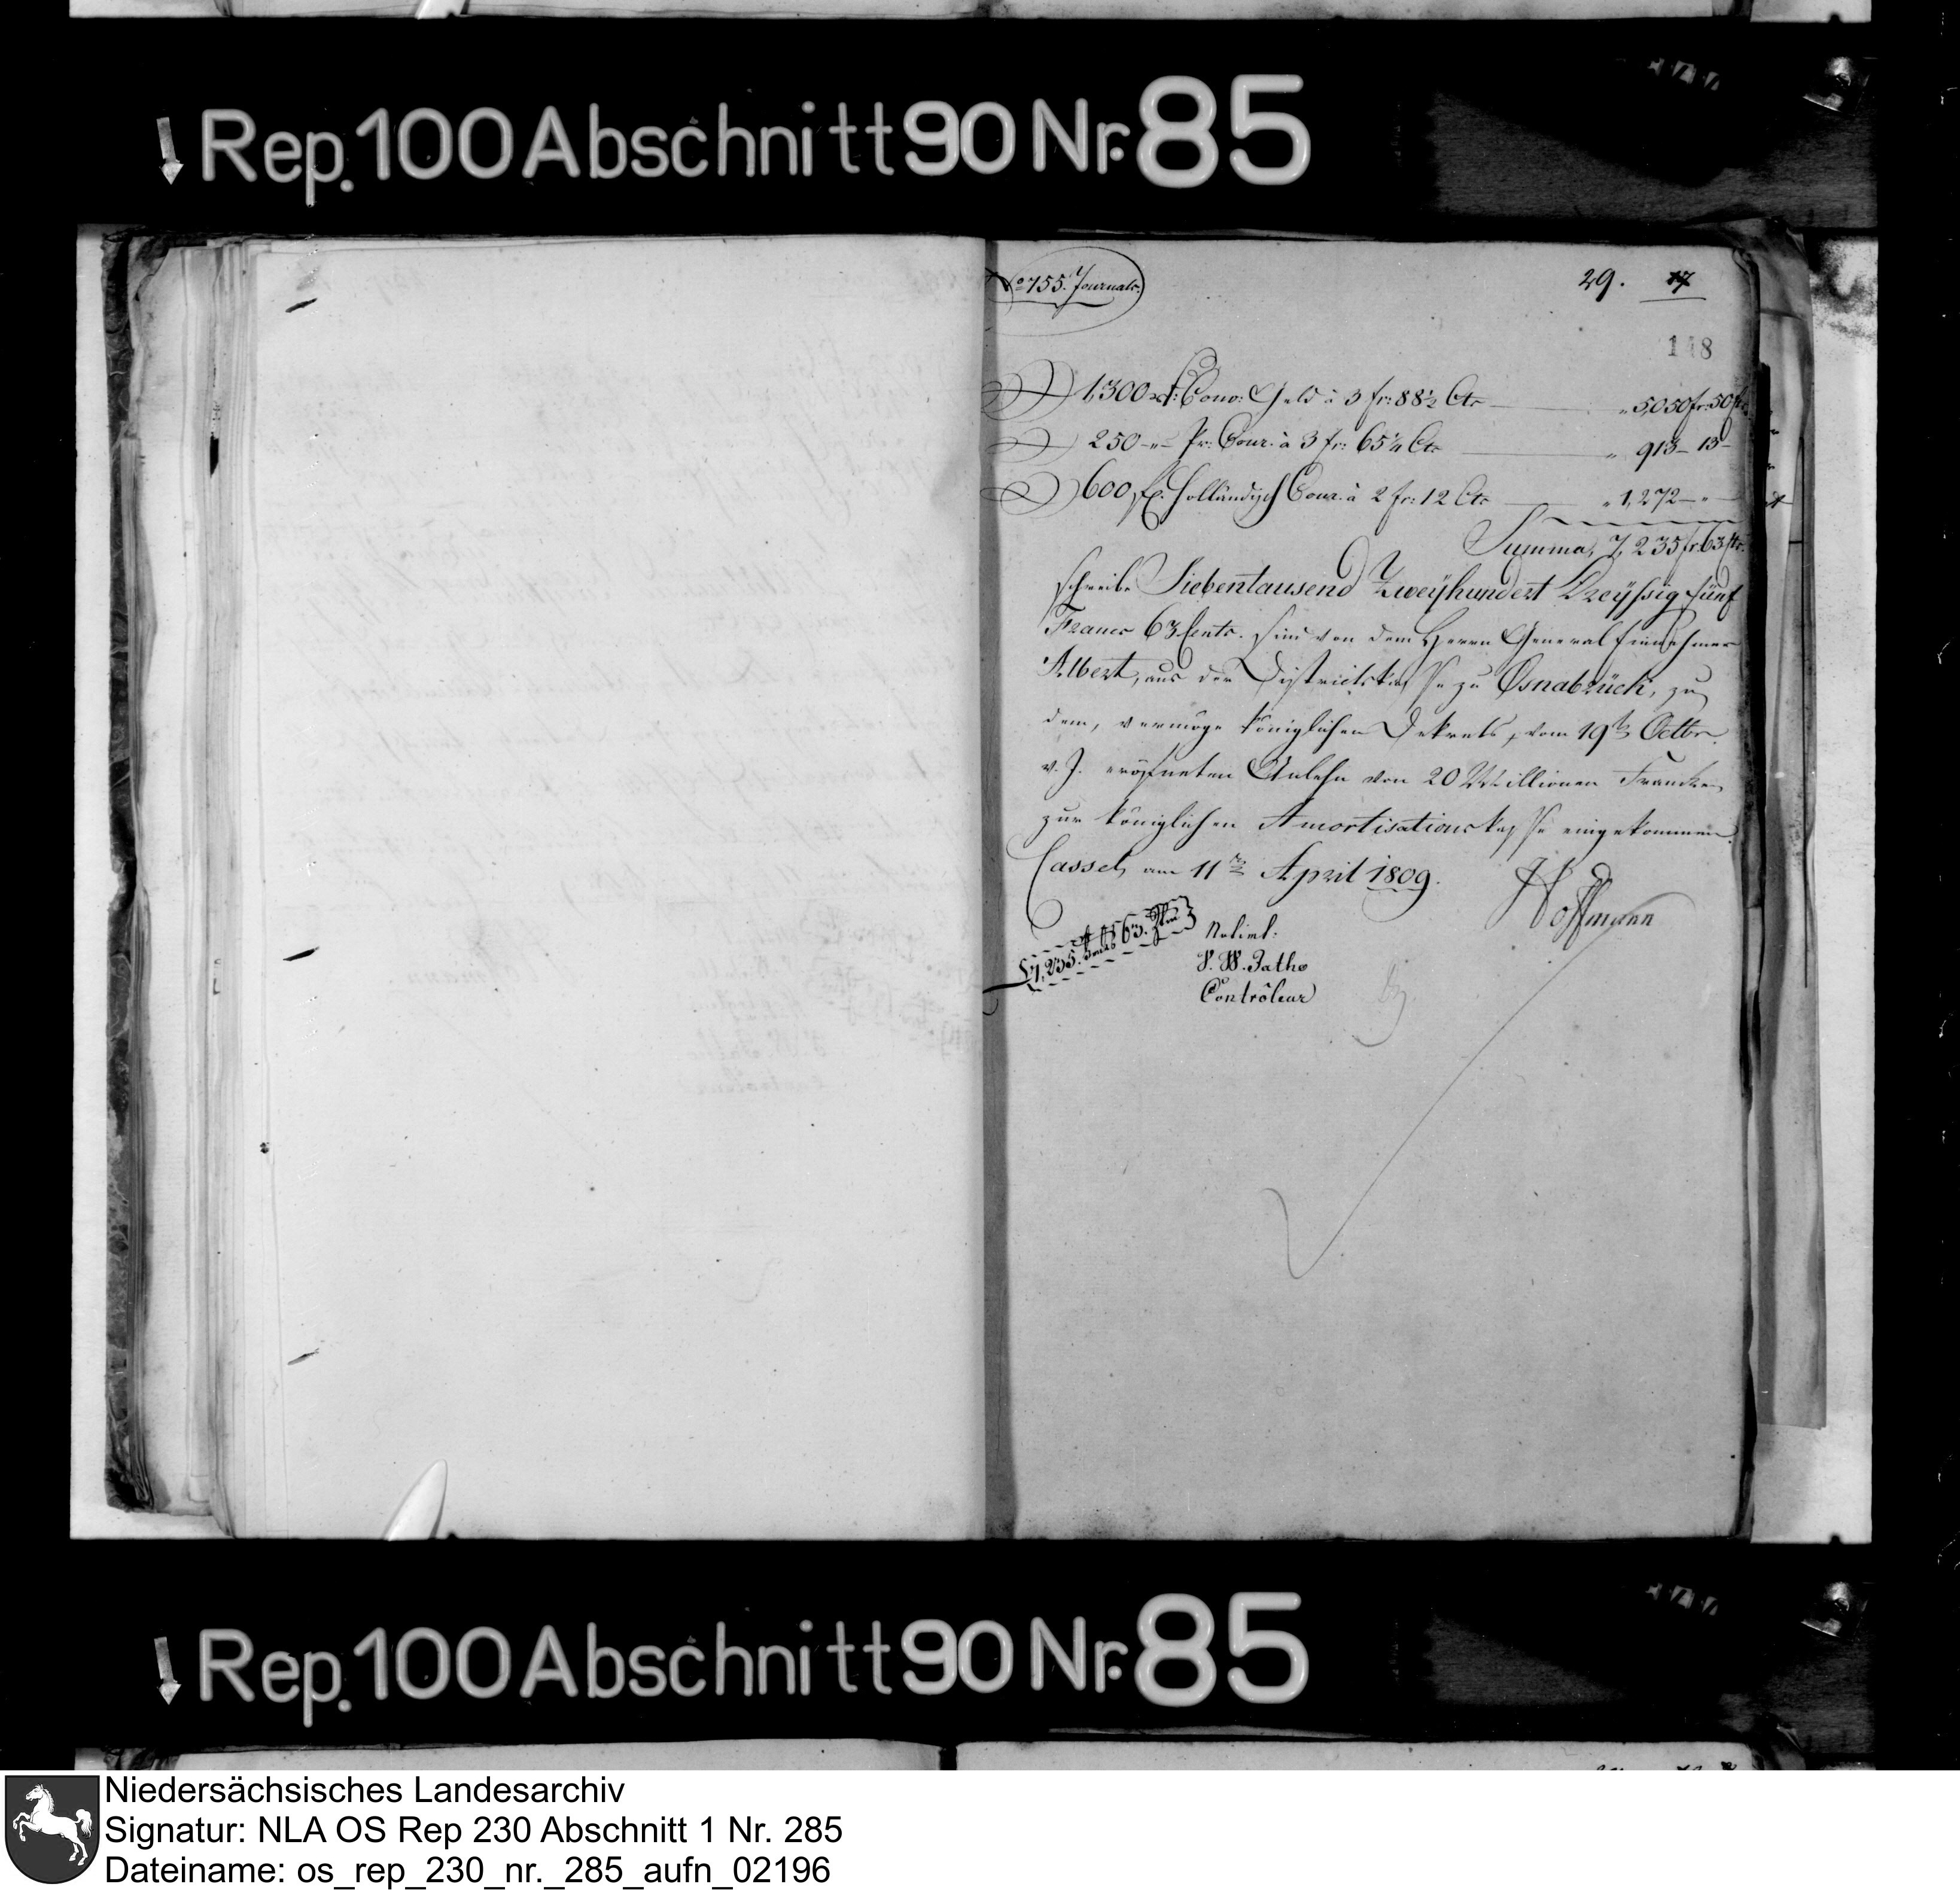 Rep. 100 Abschnitt 90 Nr. 85
No 755. Journals.
29. 17
148
1,300 rt: Conv: Geld à 3 fr: 88½ Cts " 5,050 fr: 50
250 -"- Pr: Cour. à 3 fr: 65¼ Cts " 913 - 13 -
600 fl. Holländisch Cour. à 2 fr: 12 Cts " 1,272 - " -
Summa, 7,235 fr. 63 Cts.
schreibe Siebentausend Zweyhundert Dreyßig fünf
Francs 63 Cents. sind von dem Herrn General Einnehmer
Albert, aus der Districtskasse zu Osnabrück, zu
dem, vermöge Königlichen Dekrets, vom 19ten Octbr.
v. J. eröfneten Anlehn von 20 Millionen Franken
zur Königlichen Amortisationskasse eingekommen.
Cassel, am 11ten April 1809.
Hoffmann
7,235. 63.
Notirt.
Contrôleur
Rep. 100 Abschnitt 90 Nr. 85
Niedersächsisches Landesarchiv
Signatur: NLA OS Rep 230 Abschnitt 1 Nr. 285
Dateiname: os_rep_230_nr._285_aufn_02196